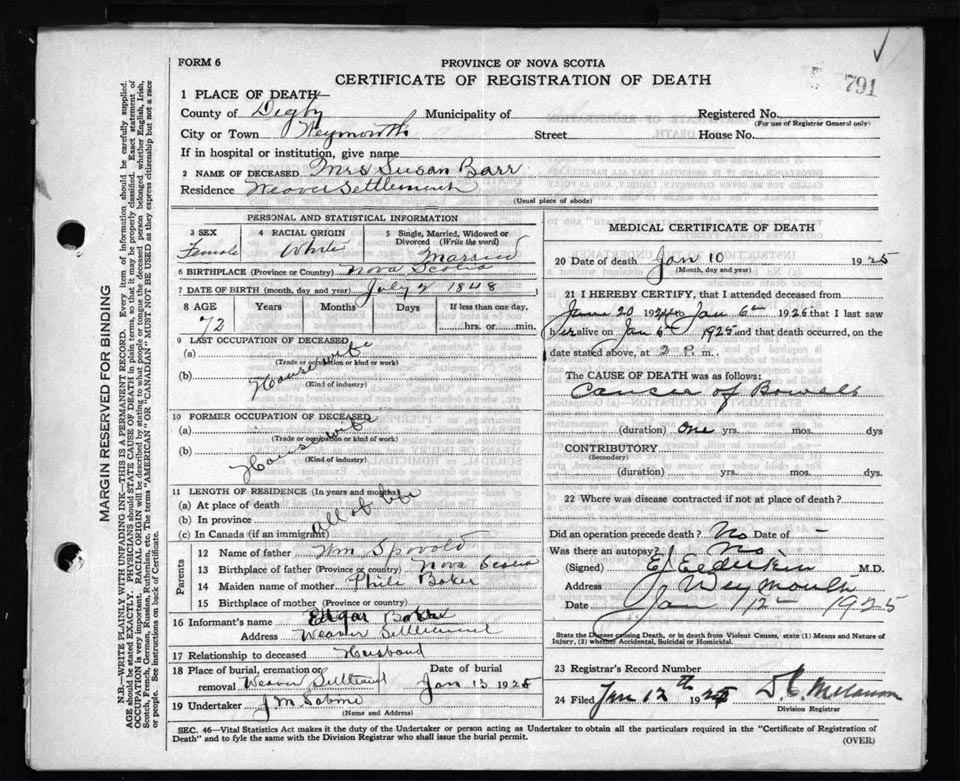 FORM 6
PROVINCE OF NOVA SCOTIA
CERTIFICATE OF REGISTRATION OF DEATH
791
1 PLACE OF DEATH—
County of Digby Municipality of Registered No.
(For use of Registrar General only)
City or Town Weymouth Street House No.
If in hospital or institution, give name
2 NAME OF DECEASED Mrs Susan Barr
Residence Weaver Settlement
(Usual place of abode)
PERSONAL AND STATISTICAL INFORMATION
3 SEX 4 RACIAL ORIGIN 5 Single, Married, Widowed or Divorced (Write the word)
Female White Married
6 BIRTHPLACE (Province or Country) Nova Scotia
7 DATE OF BIRTH (month, day and year) July 2 1848
8 AGE Years Months Days If less than one day,
72 hrs. or min.
9 LAST OCCUPATION OF DECEASED
(a)
(Trade or occupation or kind of work)
(b) Housewife
(Kind of industry)
10 FORMER OCCUPATION OF DECEASED
(a)
(Trade or occupation or kind of work)
(b) Housewife
(Kind of industry)
11 LENGTH OF RESIDENCE (In years and months)
(a) At place of death
(b) In province all of life
(c) In Canada (if an immigrant)
Parents
12 Name of father Wm
13 Birthplace of father (Province or country) Nova Scotia
14 Maiden name of mother Baker
15 Birthplace of mother (Province or country)
16 Informant's name Edgar
Address Weaver Settlement
17 Relationship to deceased Husband
18 Place of burial, cremation or removal Weaver Settlement Date of burial Jan 13 1925
19 Undertaker J M
(Name and Address)
MEDICAL CERTIFICATE OF DEATH
20 Date of death Jan 10 1925
(Month, day and year)
21 I HEREBY CERTIFY, that I attended deceased from
20 1924 to Jan 6th 1925 that I last saw
her alive on Jan 6th 1925 and that death occurred, on the
date stated above, at 2 P. m.
The CAUSE OF DEATH was as follows:
Cancer of Bowels
(duration) one yrs. mos. dys
CONTRIBUTORY
(Secondary)
(duration) yrs. mos. dys.
22 Where was disease contracted if not at place of death?
Did an operation precede death? No Date of -
Was there an autopsy? No
(Signed) M.D.
Address Weymouth
Date Jan 12 1925
State the Disease causing Death, or in death from Violent Causes, state (1) Means and Nature of Injury, (2) whether Accidental, Suicidal or Homicidal.
23 Registrar's Record Number
24 Filed Jan 12th 1925
Division Registrar
SEC. 46—Vital Statistics Act makes it the duty of the Undertaker or person acting as Undertaker to obtain all the particulars required in the "Certificate of Registration of
Death" and to fyle the same with the Division Registrar who shall issue the burial permit.
(OVER)
MARGIN RESERVED FOR BINDING
N.B.—WRITE PLAINLY WITH UNFADING INK—THIS IS A PERMANENT RECORD. Every item of information should be carefully supplied.
AGE should be stated EXACTLY. PHYSICIANS should STATE CAUSE OF DEATH in plain terms, so that it may be properly classified. Exact statement of
OCCUPATION is very important. RACIAL ORIGIN will be described by stating to what people or tongue the deceased person belonged, whether English, Irish,
Scotch, French, German, Russian, Ruthenian, etc. The terms "AMERICAN" OR "CANADIAN" MUST NOT BE USED as they express citizenship but not a race
or people. See instructions on back of Certificate.